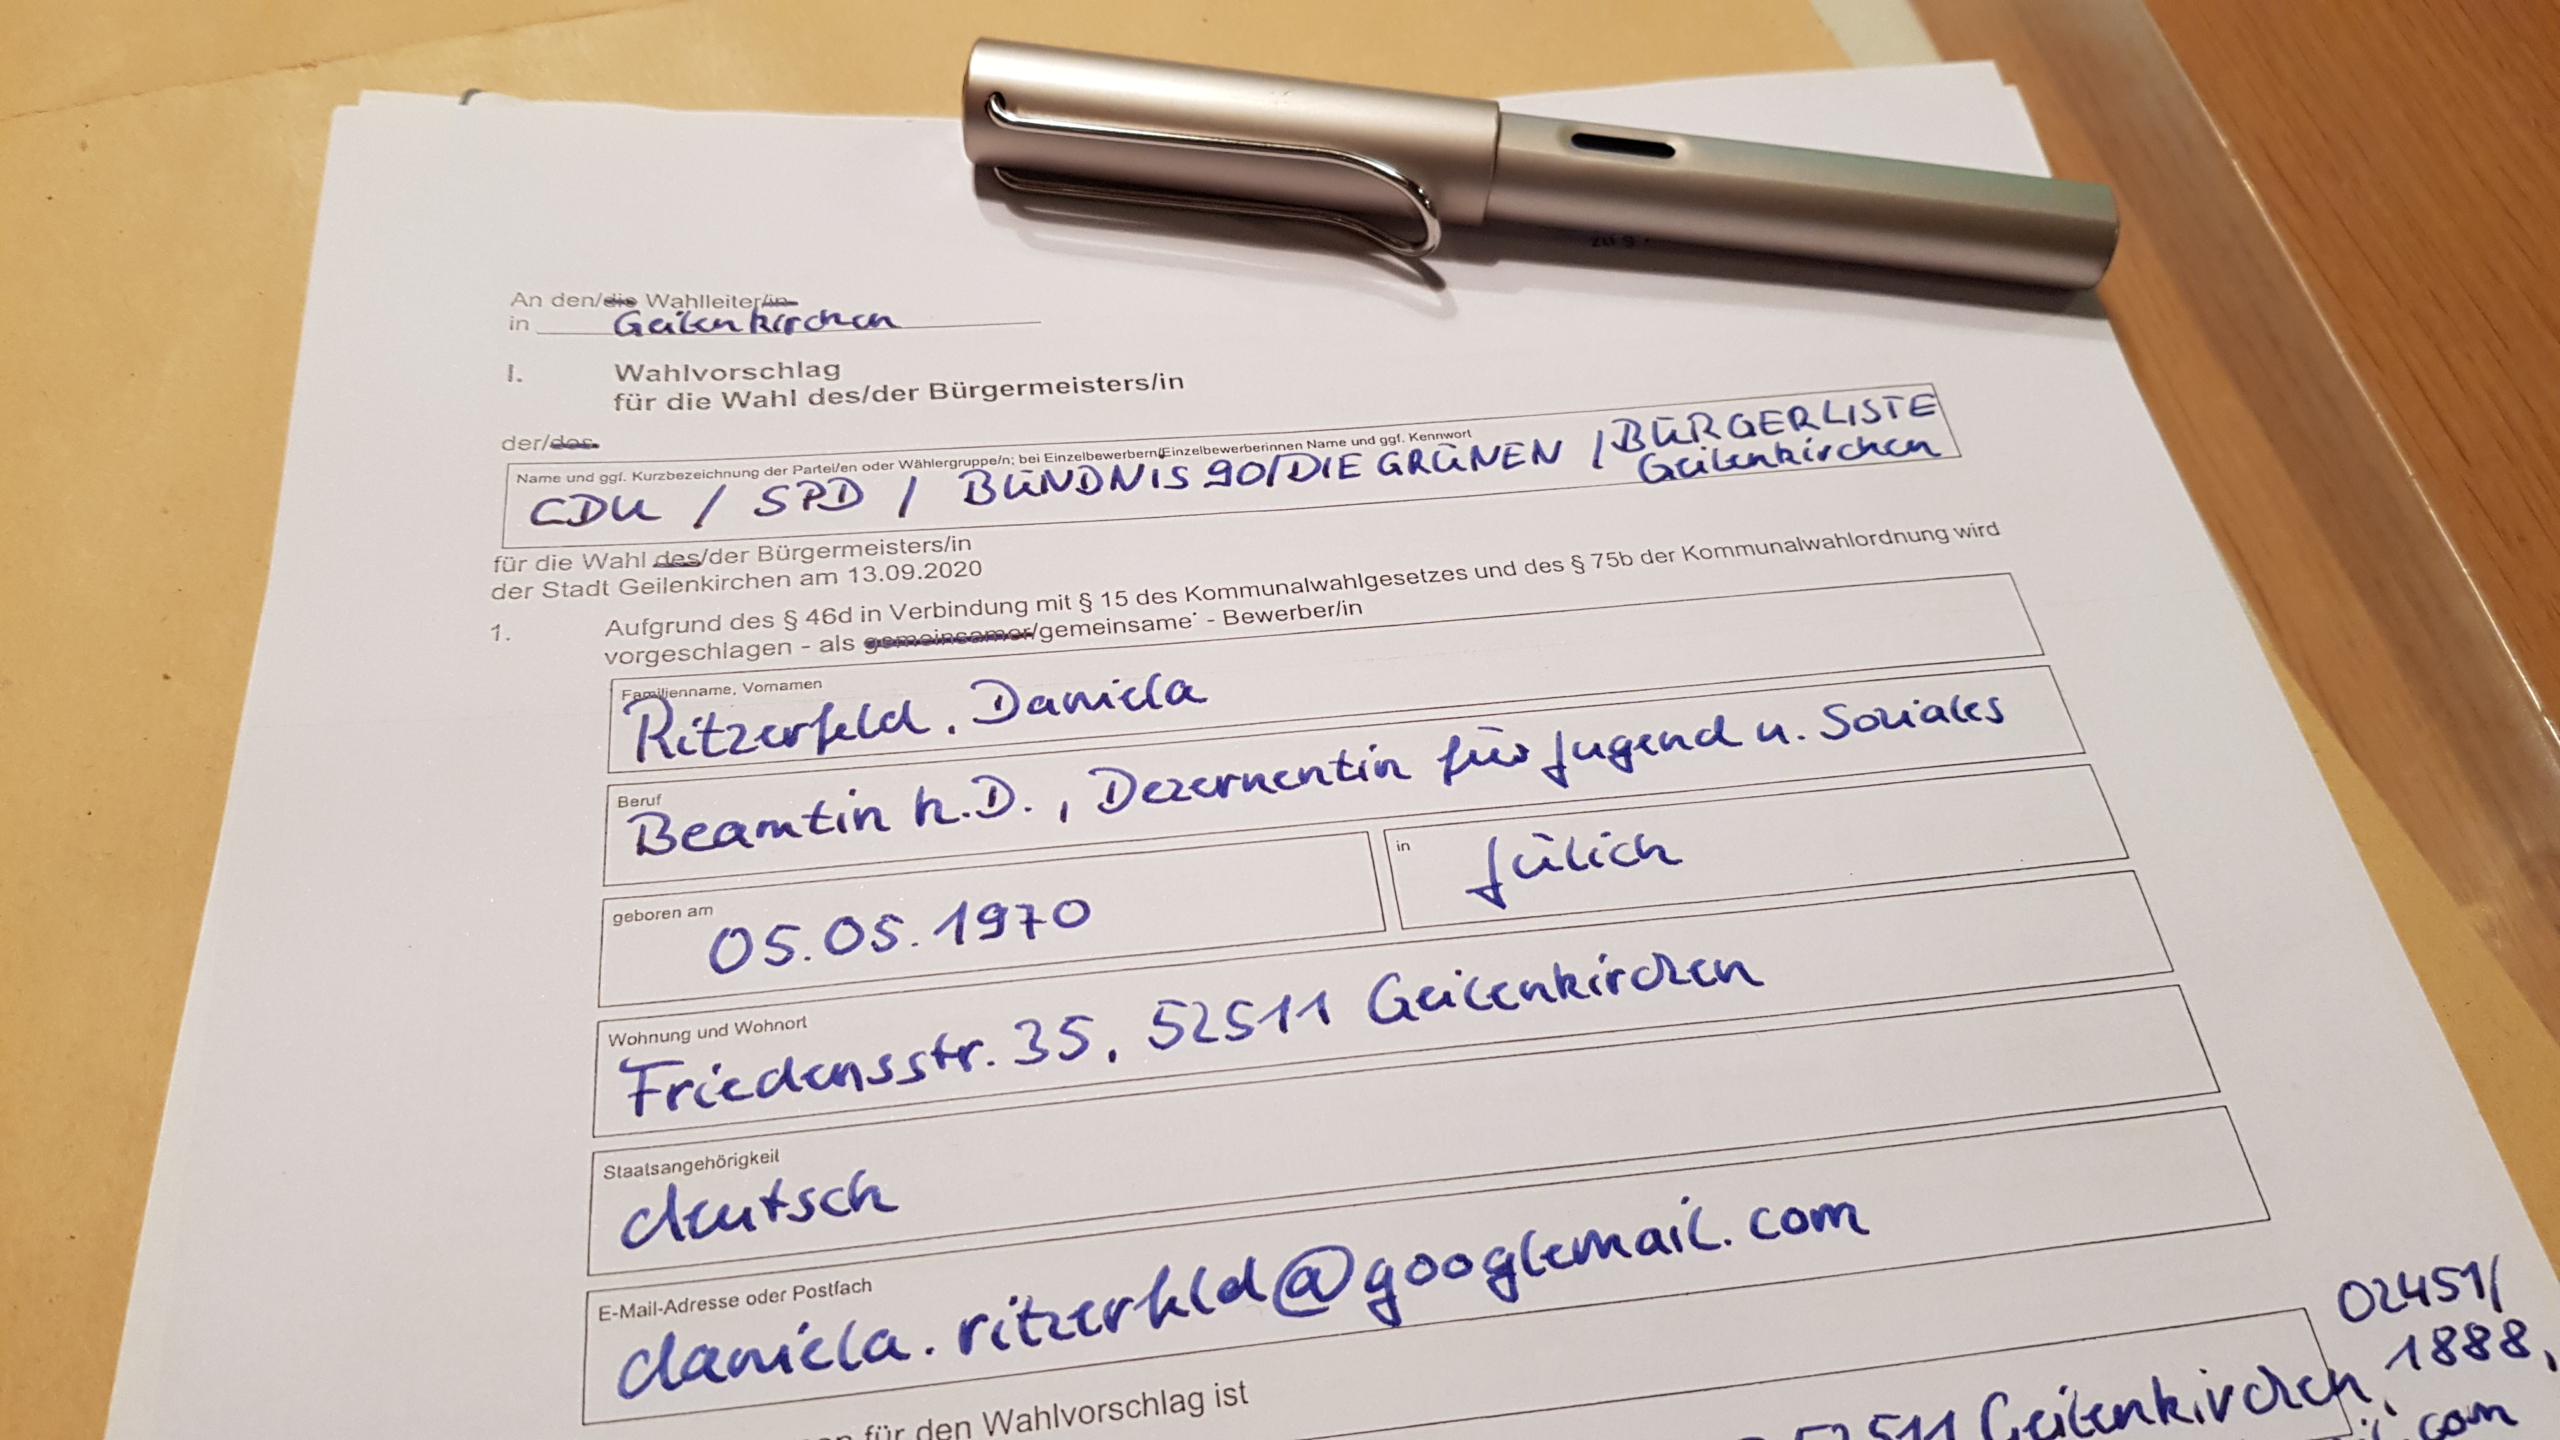 An den/die Wahlleiter/in
in Geilenkirchen
I. Wahlvorschlag
für die Wahl des/der Bürgermeisters/in
der/des
Name und ggf. Kurzbezeichnung der Partei/en oder Wählergruppe/n; bei Einzelbewerbern/Einzelbewerberinnen Name und ggf. Kennwort
CDU / SPD / BÜNDNIS 90/DIE GRÜNEN / BÜRGERLISTE
Geilenkirchen
für die Wahl des/der Bürgermeisters/in
der Stadt Geilenkirchen am 13.09.2020
1. Aufgrund des § 46d in Verbindung mit § 15 des Kommunalwahlgesetzes und des § 75b der Kommunalwahlordnung wird
vorgeschlagen - als gemeinsamer/gemeinsame* - Bewerber/in
Familienname, Vornamen
Ritzerfeld, Daniela
Beruf
Beamtin h.D., Dezernentin für Jugend u. Soziales
geboren am
05.05.1970
in
Jülich
Wohnung und Wohnort
Friedensstr. 35, 52511 Geilenkirchen
Staatsangehörigkeit
deutsch
E-Mail-Adresse oder Postfach
daniela.ritzerfeld@googlemail.com
für den Wahlvorschlag ist
02451/
1888,
52511 Geilenkirchen,
.com